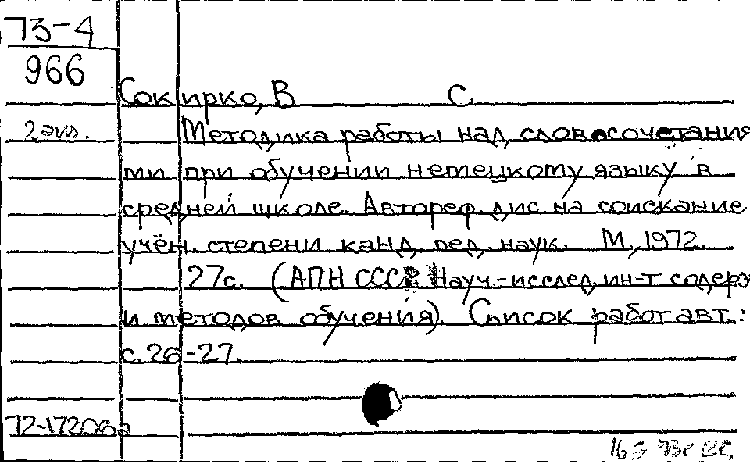 73-4
966
Сокирко, В С.
2 экз.
Методика работы над словосочетания
ми при обучении немецкому языку в
средней школе. Автореф. дис. на соискание
учён. степени канд. пед. наук. М., 1972.
27с. (АПН СССР. Науч.-исслед. ин-т содерж
и методов обучения). Список работ авт.:
с. 26-27.